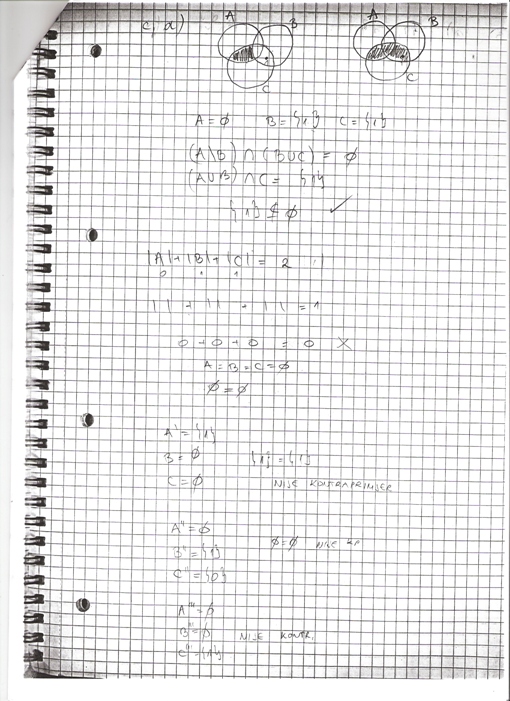 c, a)
A B
C
A B
C
A = ∅ B = {1} C = {1}
(A\B) ∩ (B∪C) = ∅
(A∪B) ∩ C = {1}
{1} ⊈ ∅ ✓
|A| + |B| + |C| = 2
0 1 1
| | + | | + | | = 1
0 + 0 + 0 = 0 X
A = B = C = ∅
∅ = ∅
A' = {1}
B = ∅ {1} = {1}
C = ∅ NIJE KONTRAPRIMJER
A'' = ∅
∅ = ∅ NIJE KP
B'' = {1}
C'' = {0}
A''' = ∅
B''' = ∅ NIJE KONTR.
C''' = {1}